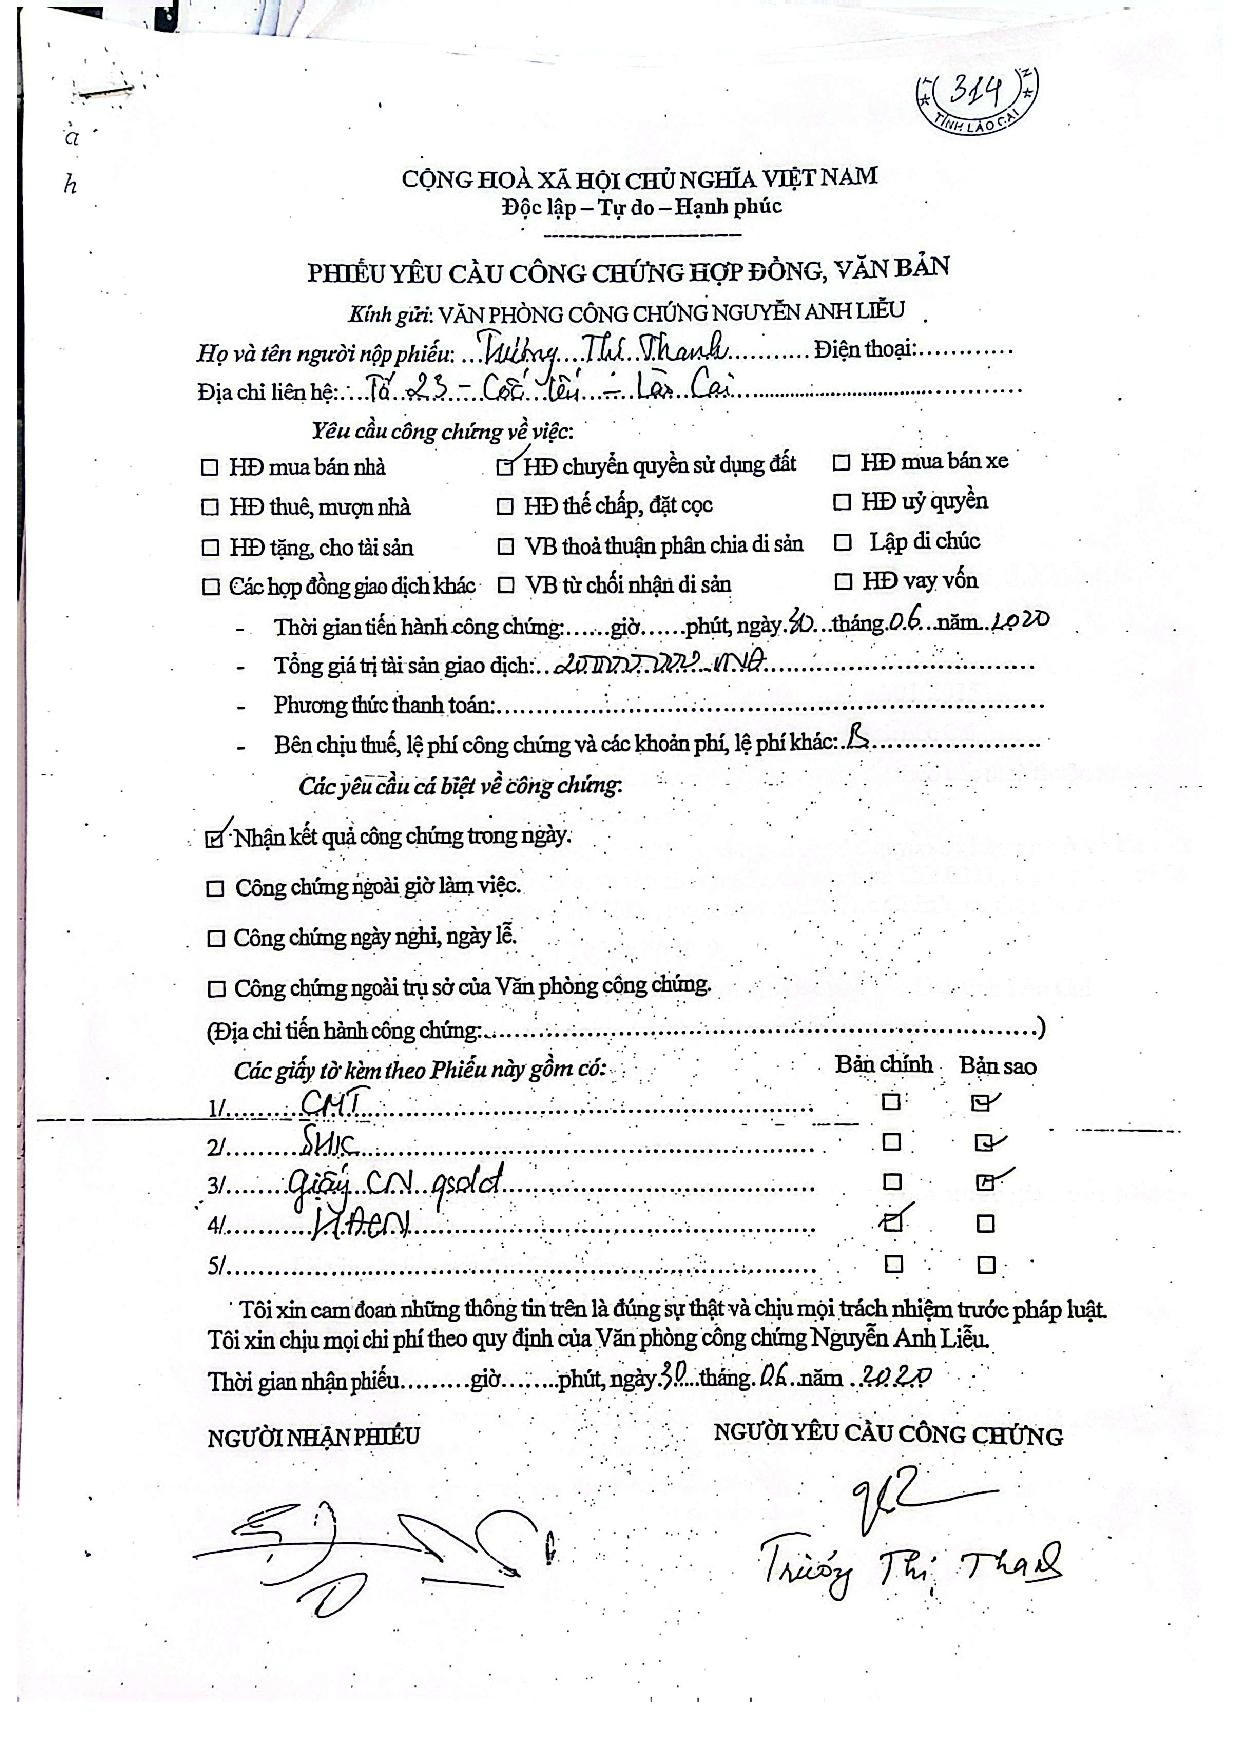 314
TỈNH LÀO CAI
à
h
CỘNG HOÀ XÃ HỘI CHỦ NGHĨA VIỆT NAM
Độc lập – Tự do – Hạnh phúc
PHIẾU YÊU CẦU CÔNG CHỨNG HỢP ĐỒNG, VĂN BẢN
Kính gửi: VĂN PHÒNG CÔNG CHỨNG NGUYỄN ANH LIỄU
Họ và tên người nộp phiếu: Thị Thanh Điện thoại:
Địa chỉ liên hệ: Tổ 23 - Cốc Lếu - Lào Cai
Yêu cầu công chứng về việc:
☐ HĐ mua bán nhà ☑ HĐ chuyển quyền sử dụng đất ☐ HĐ mua bán xe
☐ HĐ thuê, mượn nhà ☐ HĐ thế chấp, đặt cọc ☐ HĐ uỷ quyền
☐ HĐ tặng, cho tài sản ☐ VB thoả thuận phân chia di sản ☐ Lập di chúc
☐ Các hợp đồng giao dịch khác ☐ VB từ chối nhận di sản ☐ HĐ vay vốn
- Thời gian tiến hành công chứng:......giờ......phút, ngày 30 tháng 06 năm 2020
- Tổng giá trị tài sản giao dịch:
- Phương thức thanh toán:
- Bên chịu thuế, lệ phí công chứng và các khoản phí, lệ phí khác: B
Các yêu cầu cá biệt về công chứng:
☑ Nhận kết quả công chứng trong ngày.
☐ Công chứng ngoài giờ làm việc.
☐ Công chứng ngày nghỉ, ngày lễ.
☐ Công chứng ngoài trụ sở của Văn phòng công chứng.
(Địa chỉ tiến hành công chứng:......)
Các giấy tờ kèm theo Phiếu này gồm có: Bản chính Bản sao
1/ CMT ☐ ☑
2/ SHK ☐ ☑
3/ Giấy CN qsdđ ☐ ☑
4/ ☑ ☐
5/ ☐ ☐
Tôi xin cam đoan những thông tin trên là đúng sự thật và chịu mọi trách nhiệm trước pháp luật.
Tôi xin chịu mọi chi phí theo quy định của Văn phòng công chứng Nguyễn Anh Liễu.
Thời gian nhận phiếu.........giờ.......phút, ngày 30 tháng 06 năm 2020
NGƯỜI NHẬN PHIẾU NGƯỜI YÊU CẦU CÔNG CHỨNG
Thị Thanh